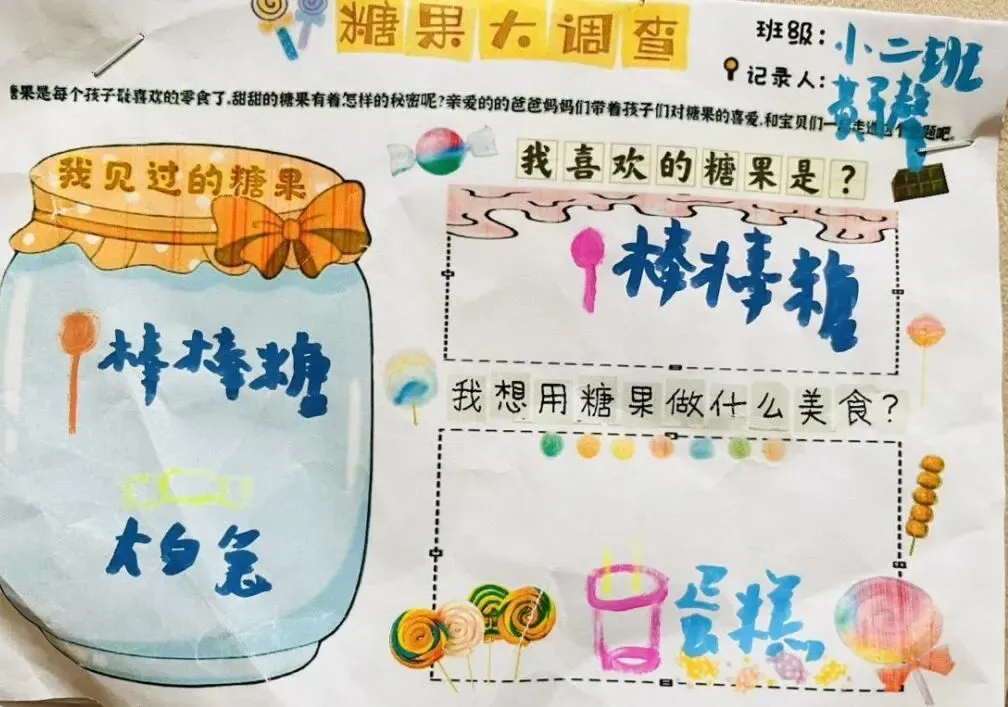 糖果大调查
班级：小二班
记录人：黄子馨
糖果是每个孩子最喜欢的零食了，甜甜的糖果有着怎样的秘密呢？亲爱的的爸爸妈妈们带着孩子们对糖果的喜爱，和宝贝们一 走进这个 题吧。
我见过的糖果
棒棒糖
大白兔
我喜欢的糖果是？
棒棒糖
我想用糖果做什么美食？
蛋糕